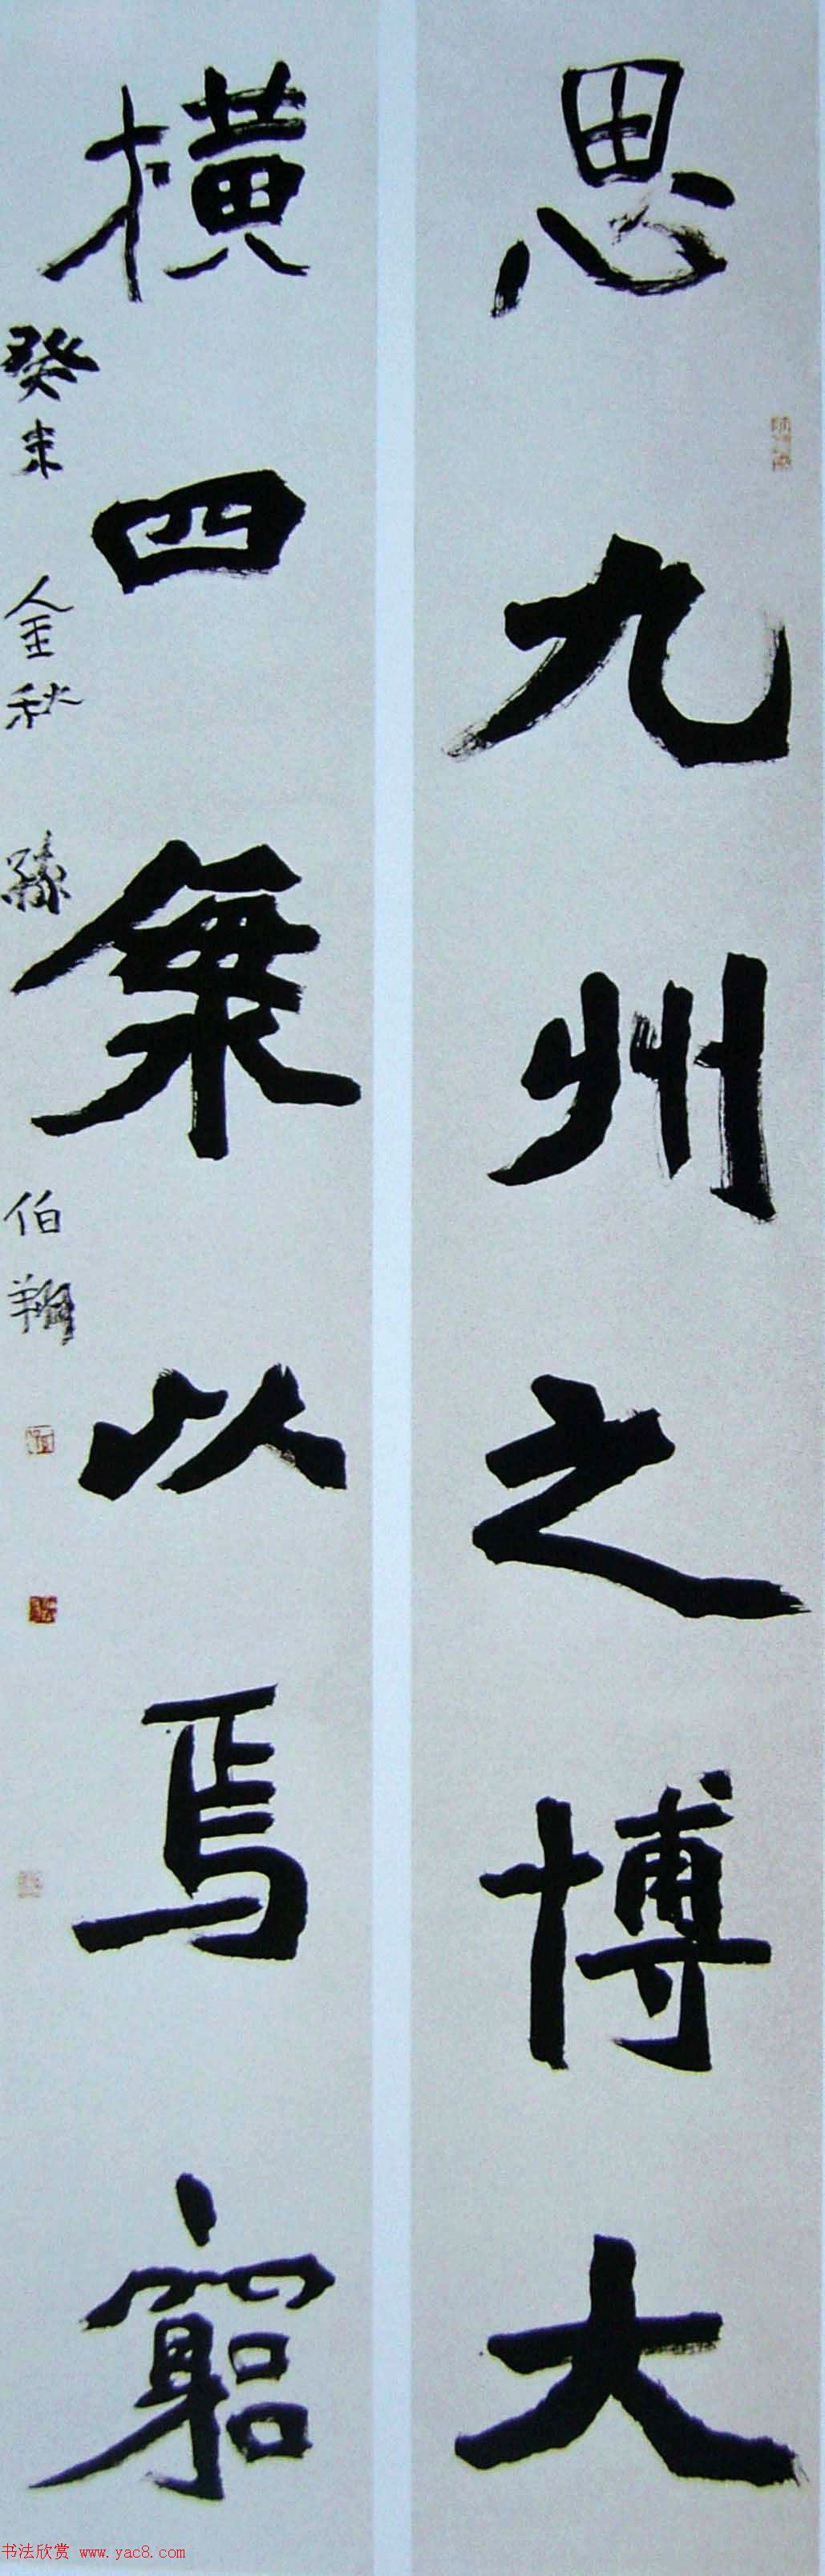 思九州之博大
橫四海以焉窮
癸未金秋孫伯翔
书法欣赏 www.yac8.com